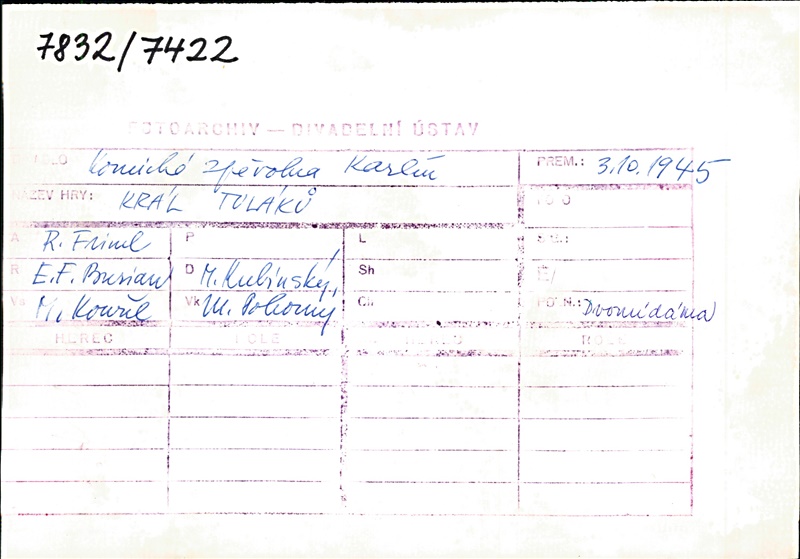 7832/7422
FOTOARCHIV — DIVADELNÍ ÚSTAV
DIVADLO Komická zpěvohra Karlín PREM.: 3.10.1945
NÁZEV HRY: KRÁL TULÁKŮ FOTO
A R. Friml P L
R E.F. Burian D M. Rubínský, Sh
M. Kouřil Vk M. Pokorný Ch
HEREC ROLE HEREC ROLE